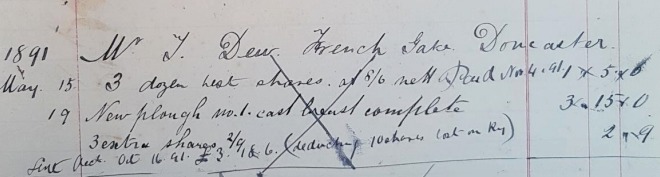 1891 Mr T. Dew. French Gate. Doncaster.
May. 15 3 dozen best shares. at 8/6 nett Paid Nov 4. 91 1 " 5 " 6
19 New plough no. 1. cast breast complete 3 " 15 " 0
3 extra shares. 2/9 (deducting 10 shares lost on Ry) 2 " 9
Sent Acct. Oct 16 91. £3. 18. 6.